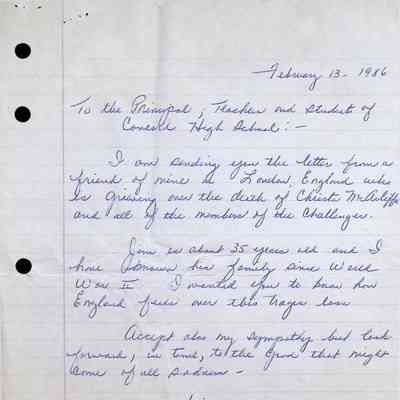 February 13 - 1986
To the Principal, Teacher and Student of
Concord High School: -
I am sending you the letter from a
friend of mine in London, England who
is grieving over the death of Christi McAuliffe
and all of the members of the Challenger.
is about 35 years old and I
have known her family since World
War II I wanted you to know how
England feels over this tragic loss
Accept also my sympathy but look
forward, in time, to the good that might
come of all sadness -